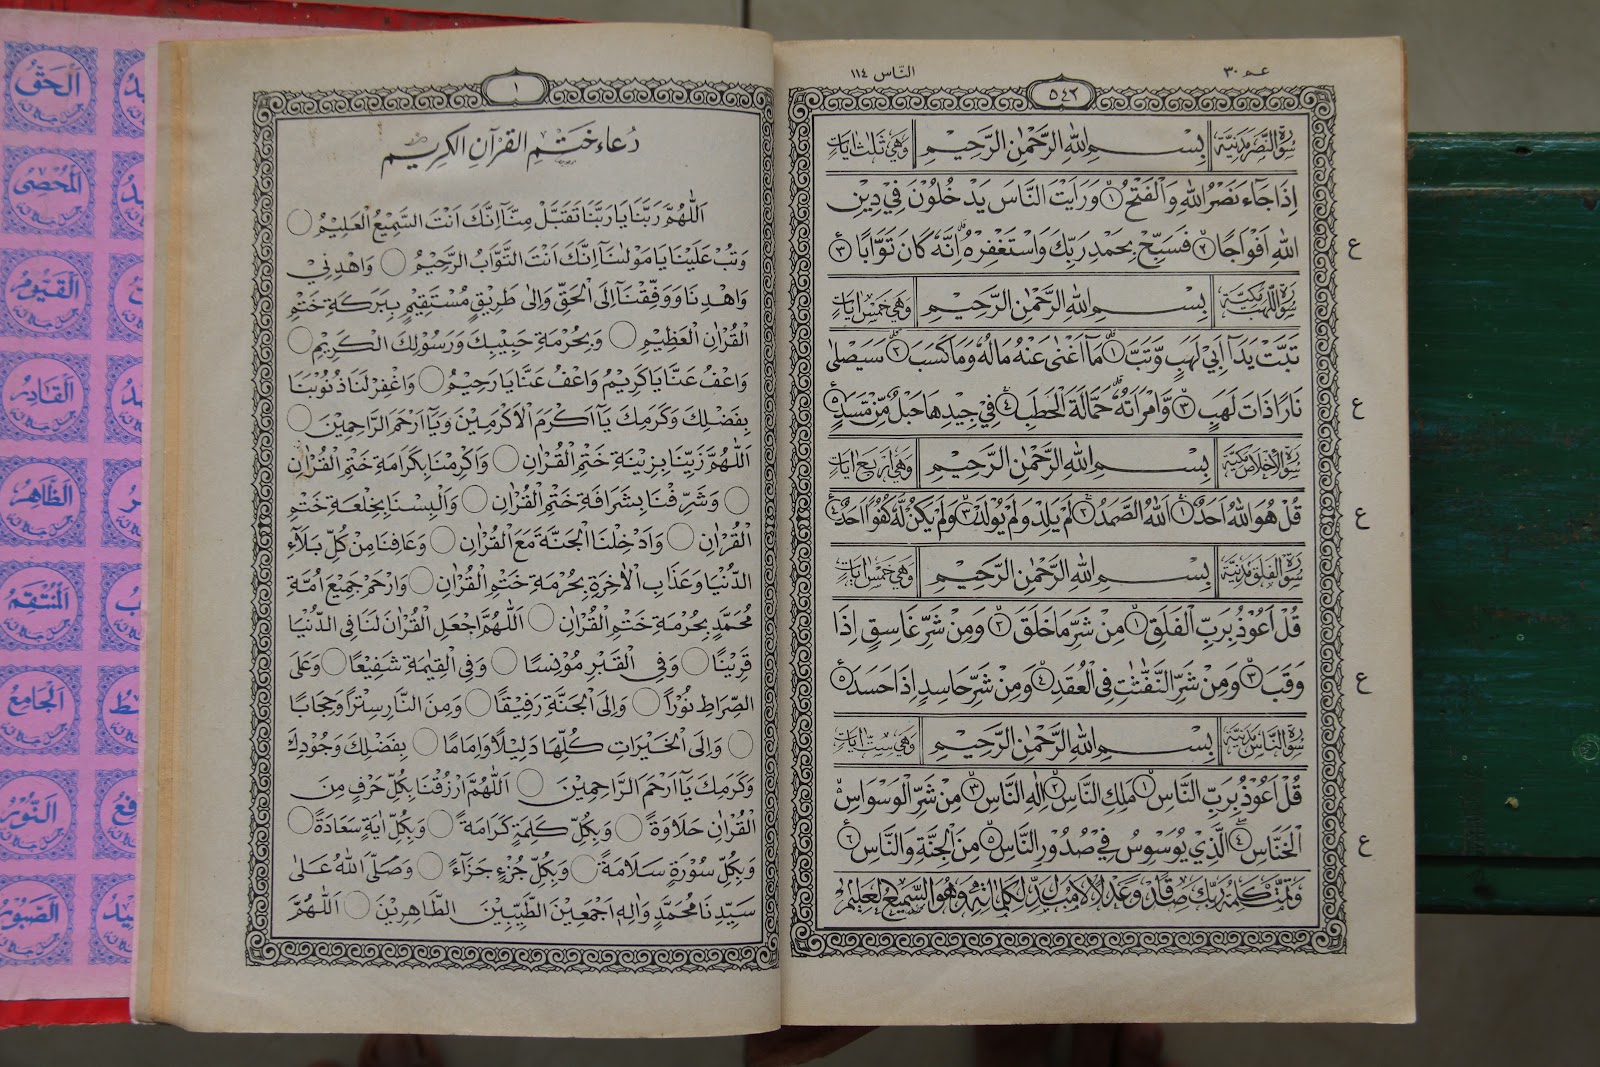 عم ٣٠
٥٤٢
الناس ١١٤
سورة النصر مدنية بِسْمِ اللهِ الرَّحْمٰنِ الرَّحِيْمِ وهي ثلث ايات
اِذَا جَآءَ نَصْرُ اللهِ وَالْفَتْحُ ١ وَرَاَيْتَ النَّاسَ يَدْخُلُوْنَ فِيْ دِيْنِ
اللهِ اَفْوَاجًا ٢ فَسَبِّحْ بِحَمْدِ رَبِّكَ وَاسْتَغْفِرْهُ اِنَّهٗ كَانَ تَوَّابًا ٣ ع
سورة اللهب مكية بِسْمِ اللهِ الرَّحْمٰنِ الرَّحِيْمِ وهي خمس ايات
تَبَّتْ يَدَآ اَبِيْ لَهَبٍ وَّتَبَّ ١ مَآ اَغْنٰى عَنْهُ مَالُهٗ وَمَا كَسَبَ ٢ سَيَصْلٰى
نَارًا ذَاتَ لَهَبٍ ٣ وَّامْرَاَتُهٗ حَمَّالَةَ الْحَطَبِ ٤ فِيْ جِيْدِهَا حَبْلٌ مِّنْ مَّسَدٍ ٥ ع
سورة الاخلاص مكية بِسْمِ اللهِ الرَّحْمٰنِ الرَّحِيْمِ وهي اربع ايات
قُلْ هُوَ اللهُ اَحَدٌ ١ اَللهُ الصَّمَدُ ٢ لَمْ يَلِدْ وَلَمْ يُوْلَدْ ٣ وَلَمْ يَكُنْ لَّهٗ كُفُوًا اَحَدٌ ٤ ع
سورة الفلق مدنية بِسْمِ اللهِ الرَّحْمٰنِ الرَّحِيْمِ وهي خمس ايات
قُلْ اَعُوْذُ بِرَبِّ الْفَلَقِ ١ مِنْ شَرِّ مَا خَلَقَ ٢ وَمِنْ شَرِّ غَاسِقٍ اِذَا
وَقَبَ ٣ وَمِنْ شَرِّ النَّفّٰثٰتِ فِى الْعُقَدِ ٤ وَمِنْ شَرِّ حَاسِدٍ اِذَا حَسَدَ ٥ ع
سورة الناس مدنية بِسْمِ اللهِ الرَّحْمٰنِ الرَّحِيْمِ وهي ست ايات
قُلْ اَعُوْذُ بِرَبِّ النَّاسِ ١ مَلِكِ النَّاسِ ٢ اِلٰهِ النَّاسِ ٣ مِنْ شَرِّ الْوَسْوَاسِ
الْخَنَّاسِ ٤ الَّذِيْ يُوَسْوِسُ فِيْ صُدُوْرِ النَّاسِ ٥ مِنَ الْجِنَّةِ وَالنَّاسِ ٦ ع
وَتَمَّتْ كَلِمَتُ رَبِّكَ صِدْقًا وَّعَدْلًا لَامُبَدِّلَ لِكَلِمَاتِهٖ وَهُوَ السَّمِيْعُ الْعَلِيْمُ
١
دُعَاءُ خَتْمِ الْقُرْآنِ الْكَرِيْمِ
اَللّٰهُمَّ رَبَّنَا يَا رَبَّنَا تَقَبَّلْ مِنَّآ اِنَّكَ اَنْتَ السَّمِيْعُ الْعَلِيْمُ
وَتُبْ عَلَيْنَا يَا مَوْلٰنَآ اِنَّكَ اَنْتَ التَّوَّابُ الرَّحِيْمُ وَاهْدِنِيْ
وَاهْدِنَا وَوَفِّقْنَآ اِلَى الْحَقِّ وَاِلٰى طَرِيْقٍ مُسْتَقِيْمٍ بِبَرَكَةِ خَتْمِ
الْقُرْاٰنِ الْعَظِيْمِ وَبِحُرْمَةِ حَبِيْبِكَ وَرَسُوْلِكَ الْكَرِيْمِ
وَاعْفُ عَنَّا يَا كَرِيْمُ وَاعْفُ عَنَّا يَا رَحِيْمُ وَاغْفِرْ لَنَا ذُنُوْبَنَا
بِفَضْلِكَ وَكَرَمِكَ يَآ اَكْرَمَ الْاَكْرَمِيْنَ وَيَآ اَرْحَمَ الرَّاحِمِيْنَ
اَللّٰهُمَّ زَيِّنَّا بِزِيْنَةِ خَتْمِ الْقُرْاٰنِ وَاَكْرِمْنَا بِكَرَامَةِ خَتْمِ الْقُرْاٰنِ
وَشَرِّفْنَا بِشَرَافَةِ خَتْمِ الْقُرْاٰنِ وَاَلْبِسْنَا بِخِلْعَةِ خَتْمِ
الْقُرْاٰنِ وَاَدْخِلْنَا الْجَنَّةَ مَعَ الْقُرْاٰنِ وَعَافِنَا مِنْ كُلِّ بَلَآءِ
الدُّنْيَا وَعَذَابِ الْاٰخِرَةِ بِحُرْمَةِ خَتْمِ الْقُرْاٰنِ وَارْحَمْ جَمِيْعَ اُمَّةِ
مُحَمَّدٍ بِحُرْمَةِ خَتْمِ الْقُرْاٰنِ اَللّٰهُمَّ اجْعَلِ الْقُرْاٰنَ لَنَا فِى الدُّنْيَا
قَرِيْنًا وَفِى الْقَبْرِ مُوْنِسًا وَفِى الْقِيٰمَةِ شَفِيْعًا وَعَلَى
الصِّرَاطِ نُوْرًا وَاِلَى الْجَنَّةِ رَفِيْقًا وَمِنَ النَّارِ سِتْرًا وَحِجَابًا
وَاِلَى الْخَيْرَاتِ كُلِّهَا دَلِيْلًا وَاِمَامًا بِفَضْلِكَ وَجُوْدِكَ
وَكَرَمِكَ يَآ اَرْحَمَ الرَّاحِمِيْنَ اَللّٰهُمَّ ارْزُقْنَا بِكُلِّ حَرْفٍ مِنَ
الْقُرْاٰنِ حَلَاوَةً وَبِكُلِّ كَلِمَةٍ كَرَامَةً وَبِكُلِّ اٰيَةٍ سَعَادَةً
وَبِكُلِّ سُوْرَةٍ سَلَامَةً وَبِكُلِّ جُزْءٍ جَزَآءً وَصَلَّى اللهُ عَلٰى
سَيِّدِنَا مُحَمَّدٍ وَاٰلِهٖ اَجْمَعِيْنَ الطَّيِّبِيْنَ الطَّاهِرِيْنَ اَللّٰهُمَّ
اَلْحَقُّ جل جلاله
اَلْمُحْصِى جل جلاله
اَلْقَيُّوْمُ جل جلاله
اَلْقَادِرُ جل جلاله
اَلظَّاهِرُ جل جلاله
اَلْمُنْتَقِمُ جل جلاله
اَلْجَامِعُ جل جلاله
اَلنُّوْرُ جل جلاله
اَلصَّبُوْرُ جل جلاله